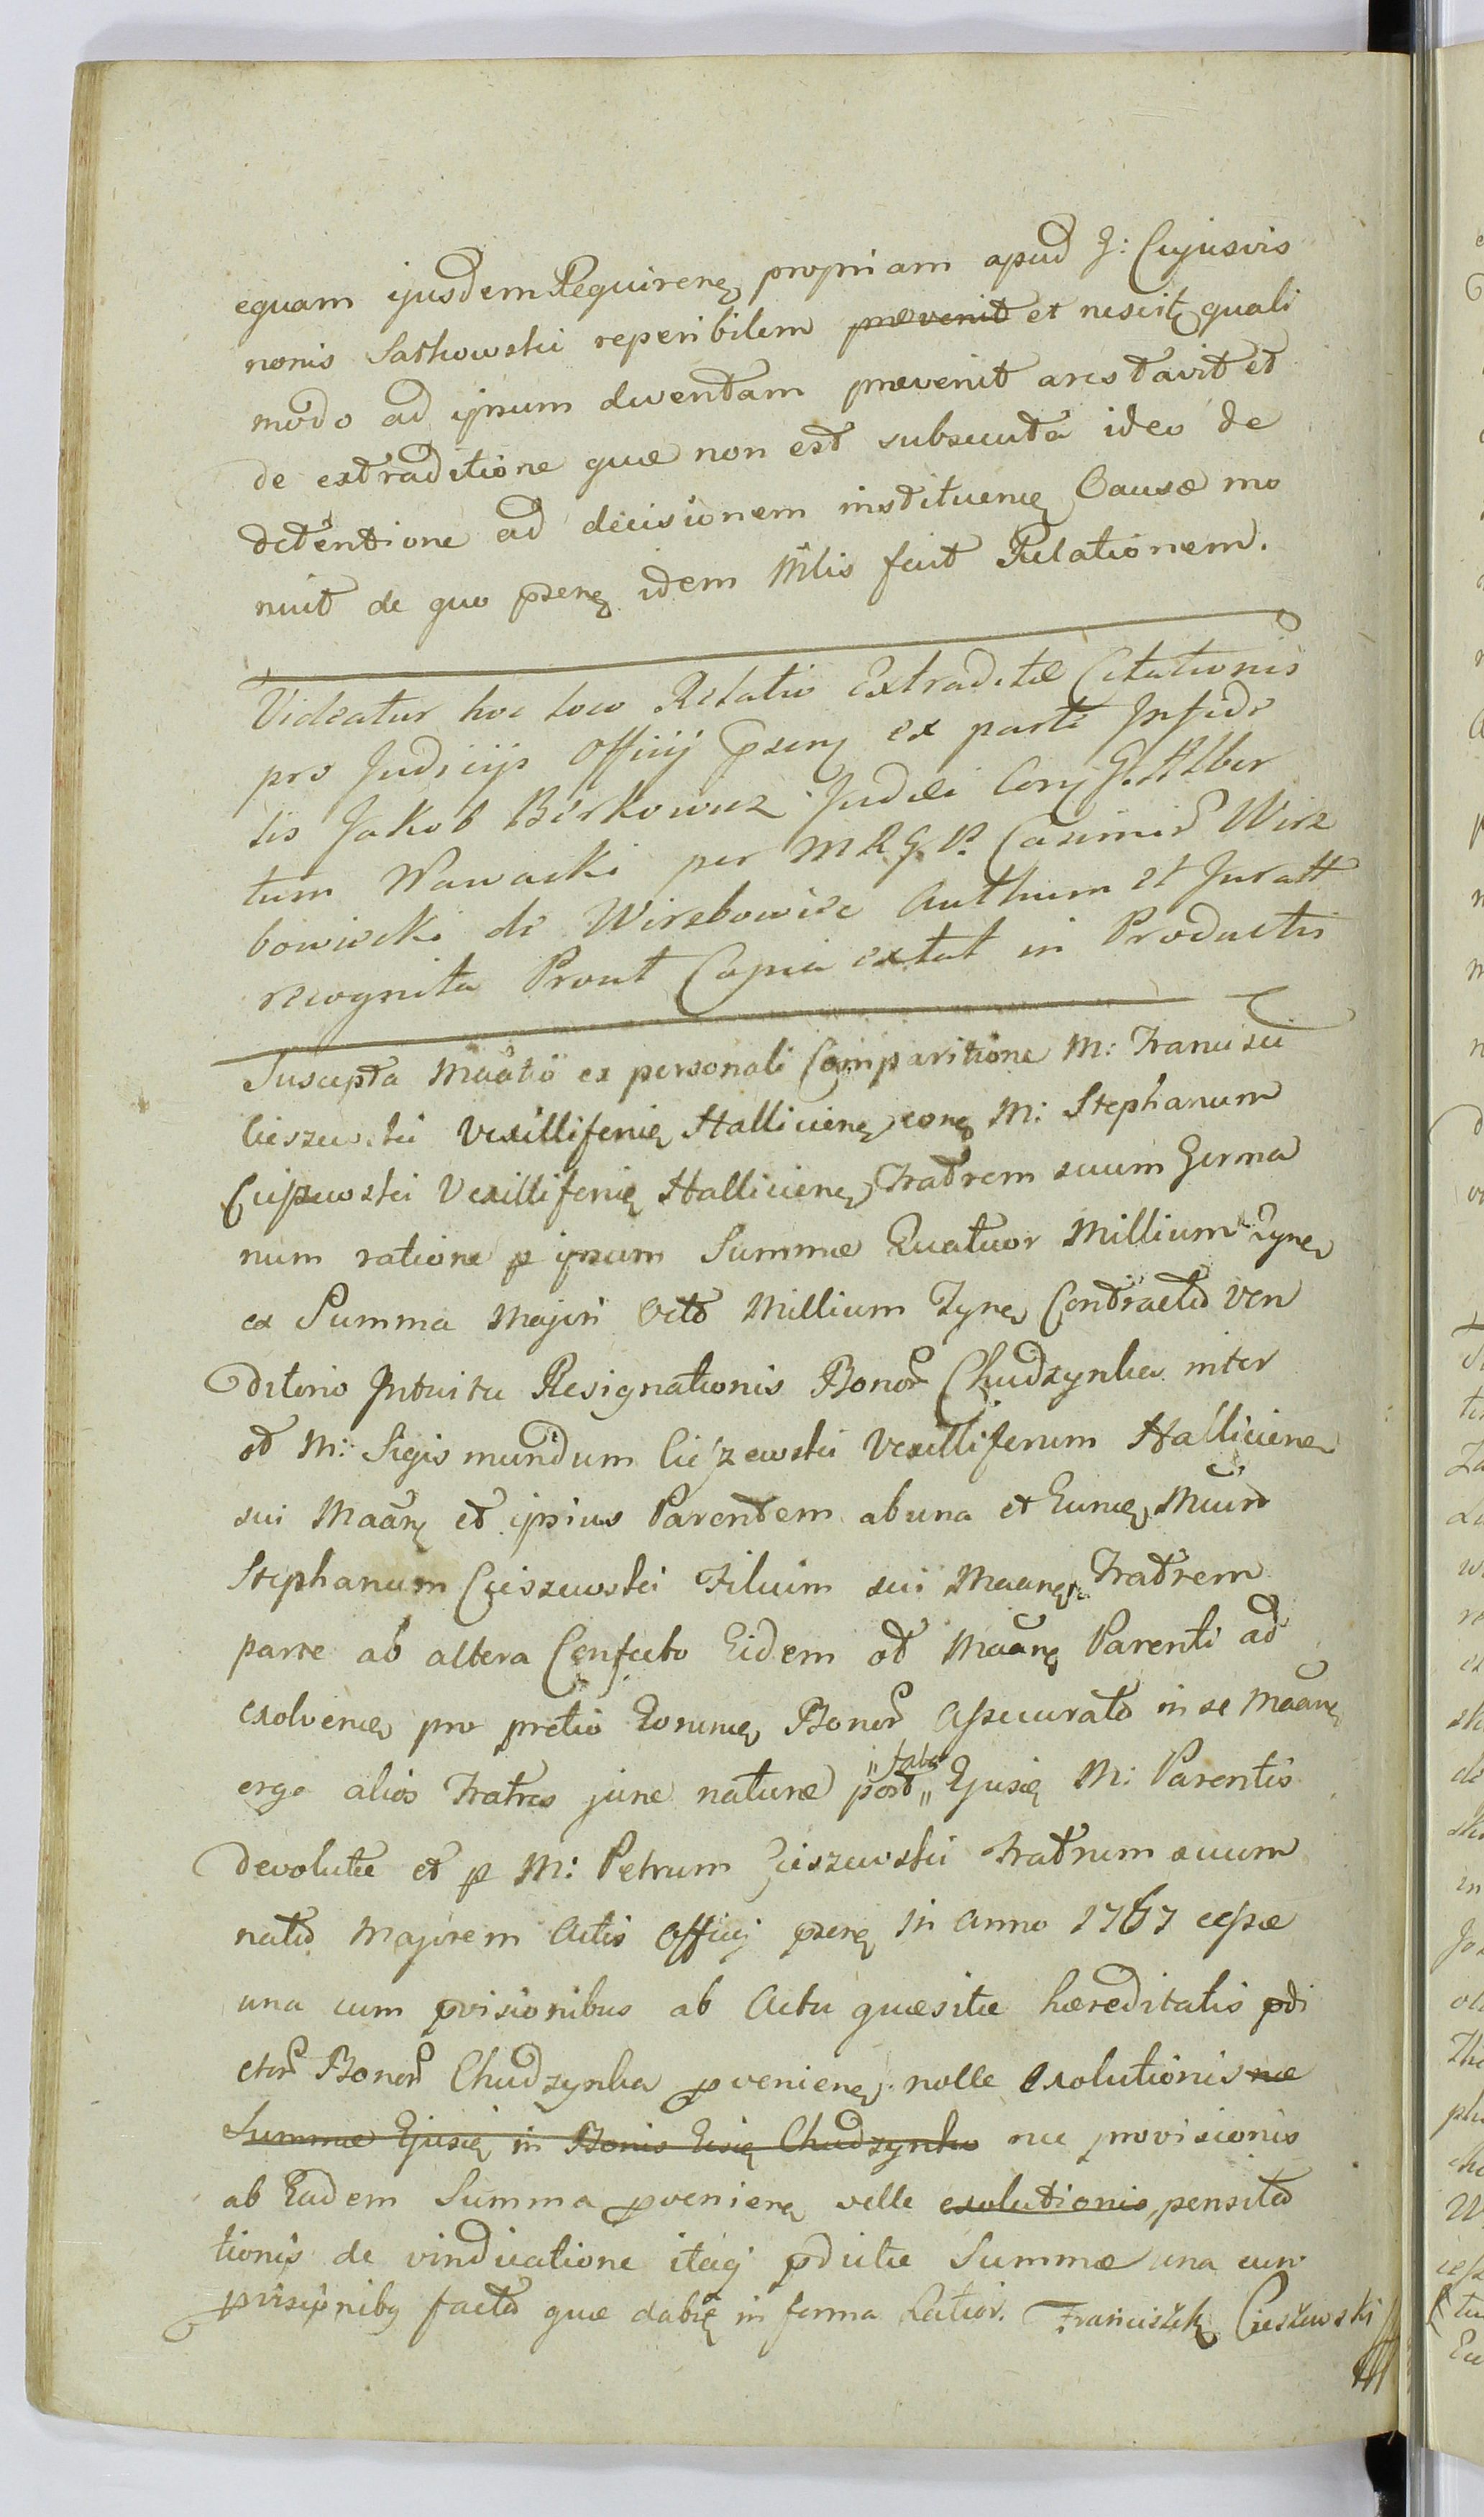 equam ejusdem Requirenę propriam apud G: Cujusvis
nonis Satkowski reperibilem praevenit et nescitę quali
modo ad ipsum deventam praevenit arestavit et
de extraditione quae non est subsecuta ideo de
detentione ad decisionem instituenę Causae mo
nuit de quo pzenę idem Mlis fecit Relationem.
Videatur hoc loco Relatio Extraditae Citationis
pro Judicijs Officij pzenę ex parte Infide
lis Jakob Berkowicz Judaei Conę G. Alber
tum Wawacki per M R G V. Casimir Wirz
bowicki de Wirzbowice Authum et Juratt
recognita Prout Copia extat in Productis
Suscepta Maatio ex personali Comparitione M: Francisci
Cieszewski Vexilliferię Hallicienę conę M: Stephanum
Cieszewski Vexilliferię Hallicienę Fratrem suum Germa
num ratione p ipsum Summae Quatuor Millium Tynę
ex Summa Majori Octo Millium Tynę Contractu Ven
ditorio Intuitu Resignationis Bonor Chudzynka inter
ot M: Sigismundum Cieszewski Vexilliferum Hallicienę
sui Maanę et ipsius Parentem ab una et Eunię Mcum
Stephanum Cieszewski Filium sui Maanę Fratrem
parte ab altera Confecto Eidem ot Maanę Parenti ad
exolvenę pro pretio Eorunię Bonor Assecurato in se Maanę
ergo alios Fratres jure naturae post fata Ejusię M: Parentis
devolutae et p M: Petrum Cieszewski Fratrum suum
natu Majorem Actis Officij pzenę in Anno 1767 cessae
una cum pvisionibus ab Actu quaesitae haereditatis pdi
ctor Bonor Chudzynka pvenienę nolle exolutionis nae
Summae Ejusię in Bonis Eisię Chudzynka nec provisionis
ab Eadem Summa pvenienę velle exolutionis pensita
tionis de vindicatione itaq pdictae Summae una cum
pvisionibq facta quae dabię in forma Latior. Franciszek Cieszewski